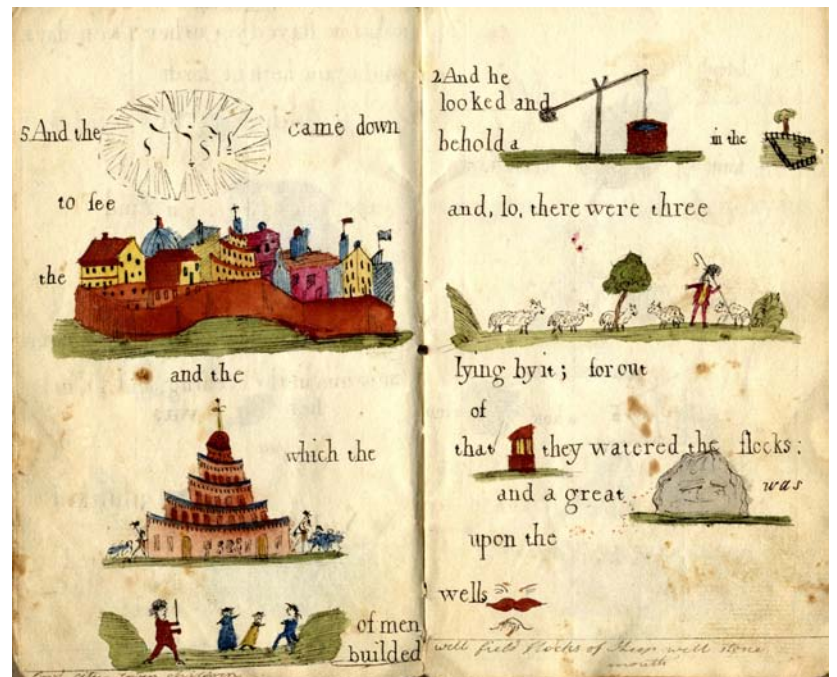 5 And the came down
to ſee
the
and the
which the
of men
builded
city tower children
2 And he
looked and
behold a in the ,
and, lo, there were three
lying by it; for out
of
that they watered the flocks:
and a great was
upon the
wells
well field flocks of Sheep well stone
mouth